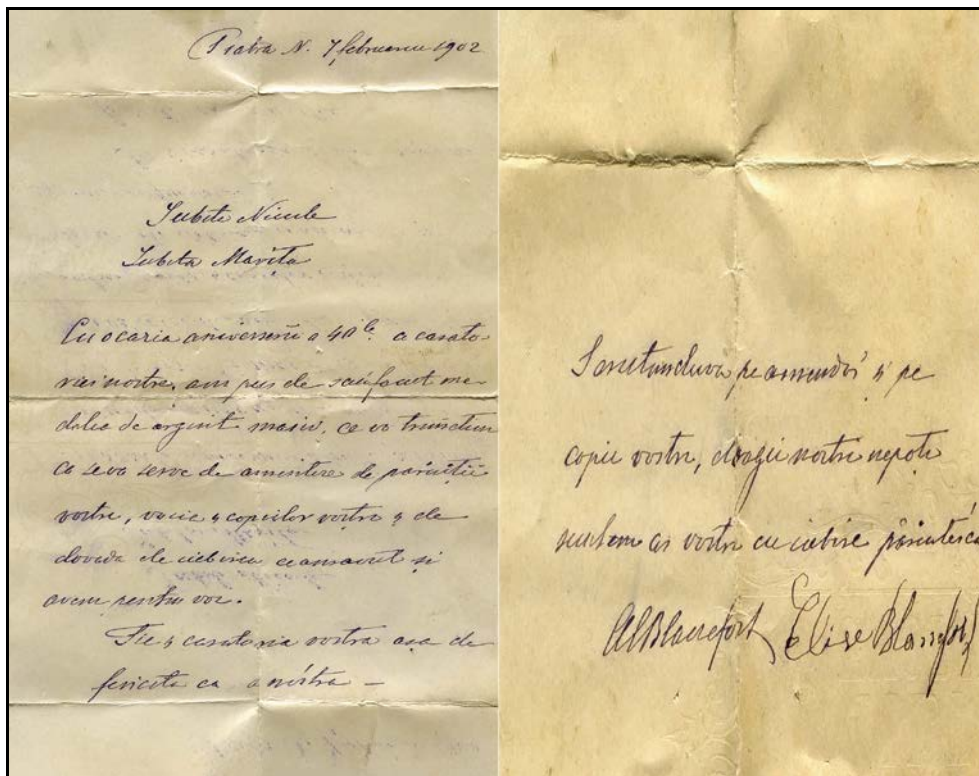 Piatra N. 7 februariu 1902
Iubite Nicule
Iubita Marita
Cu ocazia aniversarii a 40 a casato-
riei nostre, am pus de s'au facut me-
dalia de argint masiv, ce va trimitem
ca se va serve de amintire de părinții
vostre, voue și copiilor voștre și de
dovada de iubirea ce am avut și
avem pentru voi.
Fie și casatoria vostra așa de
fericita ca a nóstra —
Sarutandu-va pe amendoi și pe
copiii vostri, dragii nostre nepoti
suntem ai vostri cu iubire părintésca
Al Blancfort Elise Blancfort